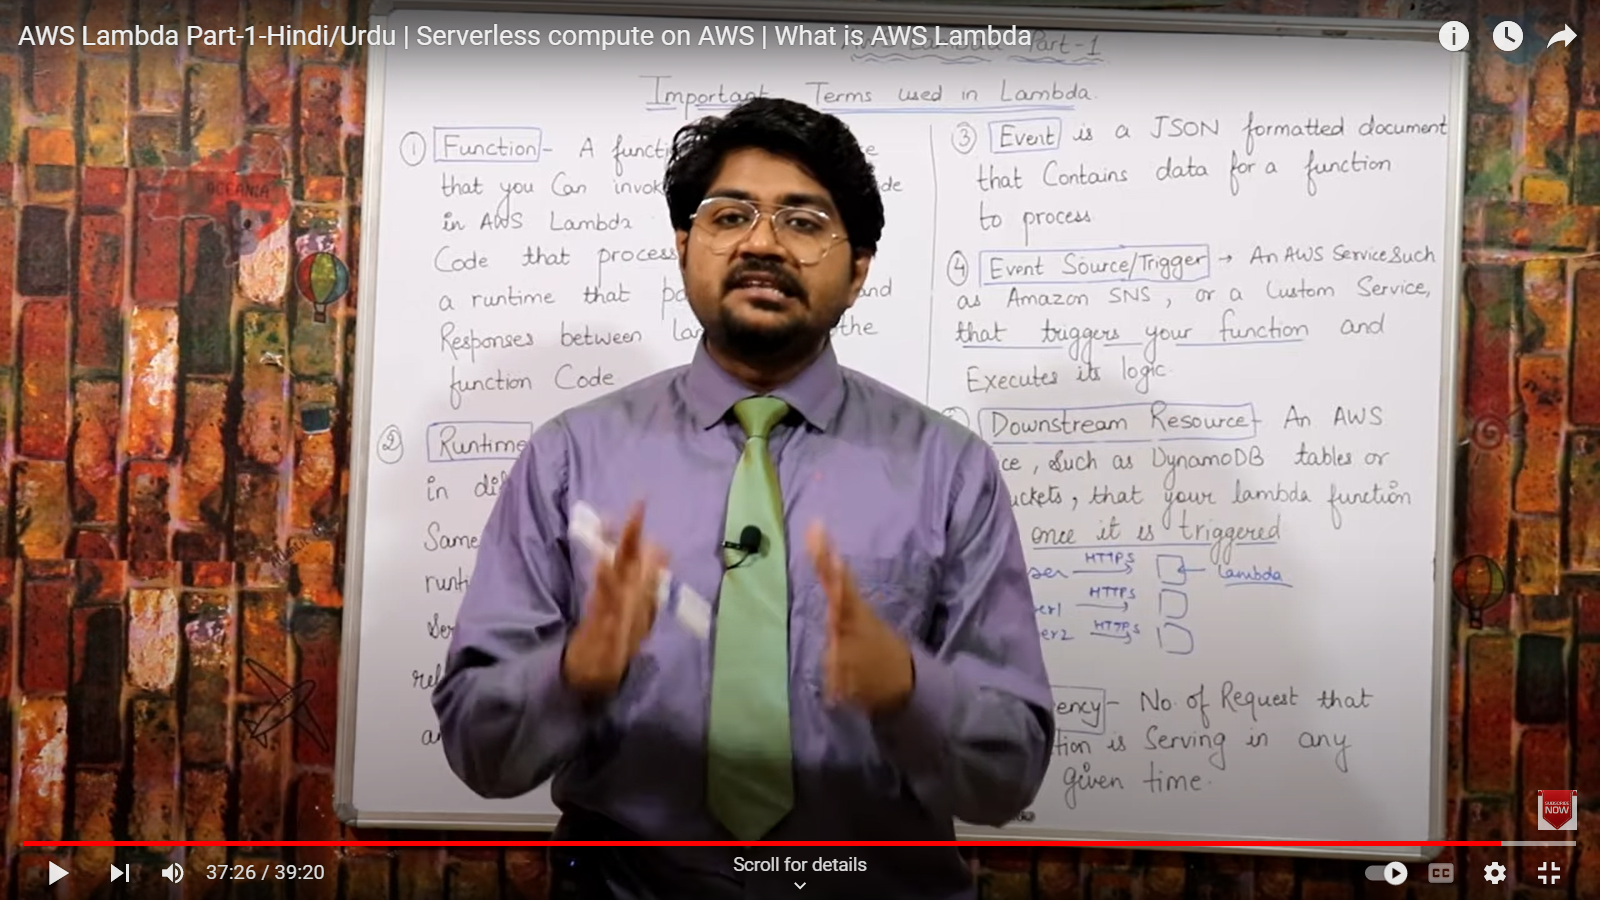 AWS Lambda Part-1-Hindi/Urdu | Serverless compute on AWS | What is AWS Lambda
Part-1
Important Terms used in Lambda.
① Function - A
that you Can
in AWS Lambda
Code that process
a runtime that and
Responses between the
function Code
② Runtime
in
Same
③ Event is a JSON formatted document
that Contains data for a function
to process
④ Event Source/Trigger → An AWS Service Such
as Amazon SNS, or a Custom Service,
that triggers your function and
Executes its logic.
Downstream Resource - An AWS
, Such as DynamoDB tables or
, that your lambda function
once it is triggered
HTTPS Lambda
HTTPS
HTTPS
- No. of Request that
is Serving in any
given time.
OCEANIA
SUBSCRIBE
NOW
37:26 / 39:20
Scroll for details
CC